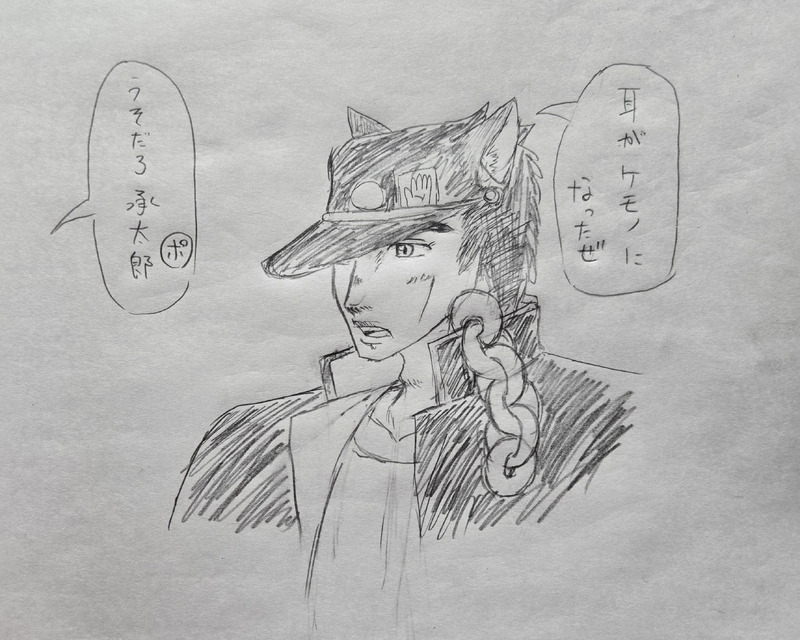 耳がケモノに
なったぜ
うそだろ承太郎
ポ